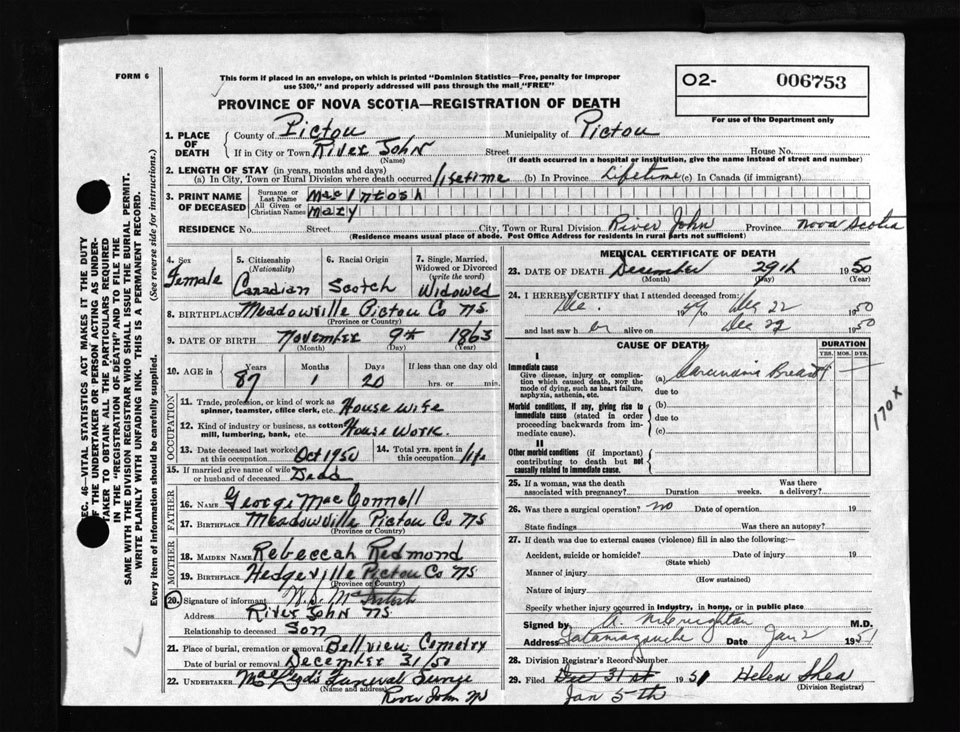 FORM 6
This form if placed in an envelope, on which is printed "Dominion Statistics—Free, penalty for improper
use $300," and properly addressed will pass through the mail "FREE"
PROVINCE OF NOVA SCOTIA—REGISTRATION OF DEATH
O2- 006753
For use of the Department only
SEC. 46—VITAL STATISTICS ACT MAKES IT THE DUTY
OF THE UNDERTAKER OR PERSON ACTING AS UNDER-
TAKER TO OBTAIN ALL THE PARTICULARS REQUIRED
IN THE "REGISTRATION OF DEATH" AND TO FILE THE
SAME WITH THE DIVISION REGISTRAR WHO SHALL ISSUE THE BURIAL PERMIT.
WRITE PLAINLY WITH UNFADING INK. THIS IS A PERMANENT RECORD.
Every item of information should be carefully supplied. (See reverse side for instructions.)
1. PLACE OF DEATH
County of Pictou Municipality of Pictou
If in City or Town River John Street House No.
(Name) (If death occurred in a hospital or institution, give the name instead of street and number)
2. LENGTH OF STAY (in years, months and days)
(a) In City, Town or Rural Division where death occurred lifetime (b) In Province Lifetime (c) In Canada (if immigrant)
3. PRINT NAME OF DECEASED
Surname or Last Name MacIntosh
All Given or Christian Names Mary
RESIDENCE No. Street City, Town or Rural Division River John Province Nova Scotia
(Residence means usual place of abode. Post Office Address for residents in rural parts not sufficient)
4. Sex Female
5. Citizenship (Nationality) Canadian
6. Racial Origin Scotch
7. Single, Married, Widowed or Divorced (write the word) Widowed
8. BIRTHPLACE Meadowville Pictou Co NS
(Province or Country)
9. DATE OF BIRTH November 9th 1863
(Month) (Day) (Year)
10. AGE in Years Months Days If less than one day
87 1 20 hrs. or min.
OCCUPATION
11. Trade, profession, or kind of work as spinner, teamster, office clerk, etc. House wife
12. Kind of industry or business, as cotton mill, lumbering, bank, etc. House Work.
13. Date deceased last worked at this occupation Oct 1950
14. Total yrs. spent in this occupation life
15. If married give name of wife or husband of deceased Dead
FATHER
16. NAME George MacConnell
17. BIRTHPLACE Meadowville Pictou Co NS
MOTHER
18. MAIDEN NAME Rebeccah Redmond
19. BIRTHPLACE Hedgeville Pictou Co NS
(Province or Country)
20. Signature of informant
Address River John NS
Relationship to deceased Son
21. Place of burial, cremation or removal Bellview Cemetry
Date of burial or removal December 31/50
22. UNDERTAKER Funeral
(Name and address) River John NS
MEDICAL CERTIFICATE OF DEATH
23. DATE OF DEATH December 29th 1950
(Month) (Day) (Year)
24. I HEREBY CERTIFY that I attended deceased from:
Dec. 1949 to Dec 22 1950
and last saw her alive on Dec 22 1950
CAUSE OF DEATH DURATION
YRS. MOS. DYS.
I
Immediate cause
Give disease, injury or complica-
tion which caused death, NOT the
mode of dying, such as heart failure,
asphyxia, asthenia, etc.
(a) Carcinoma Breast
due to
Morbid conditions, if any, giving rise to
immediate cause (stated in order
proceeding backwards from im-
mediate cause).
(b)
due to
(c)
II
Other morbid conditions (if important)
contributing to death but not
causally related to immediate cause.
170 x
25. If a woman, was the death associated with pregnancy? Duration weeks. Was there a delivery?
26. Was there a surgical operation? no Date of operation 19
State findings Was there an autopsy?
27. If death was due to external causes (violence) fill in also the following:—
Accident, suicide or homicide? Date of injury 19
(State which)
Manner of injury
(How sustained)
Nature of injury
Specify whether injury occurred in Industry, in home, or in public place
Signed by M.D.
Address Tatamagouche Date Jan 2 1951
28. Division Registrar's Record Number
29. Filed Dec 31st 1951 Helen Shea
Jan 5th (Division Registrar)